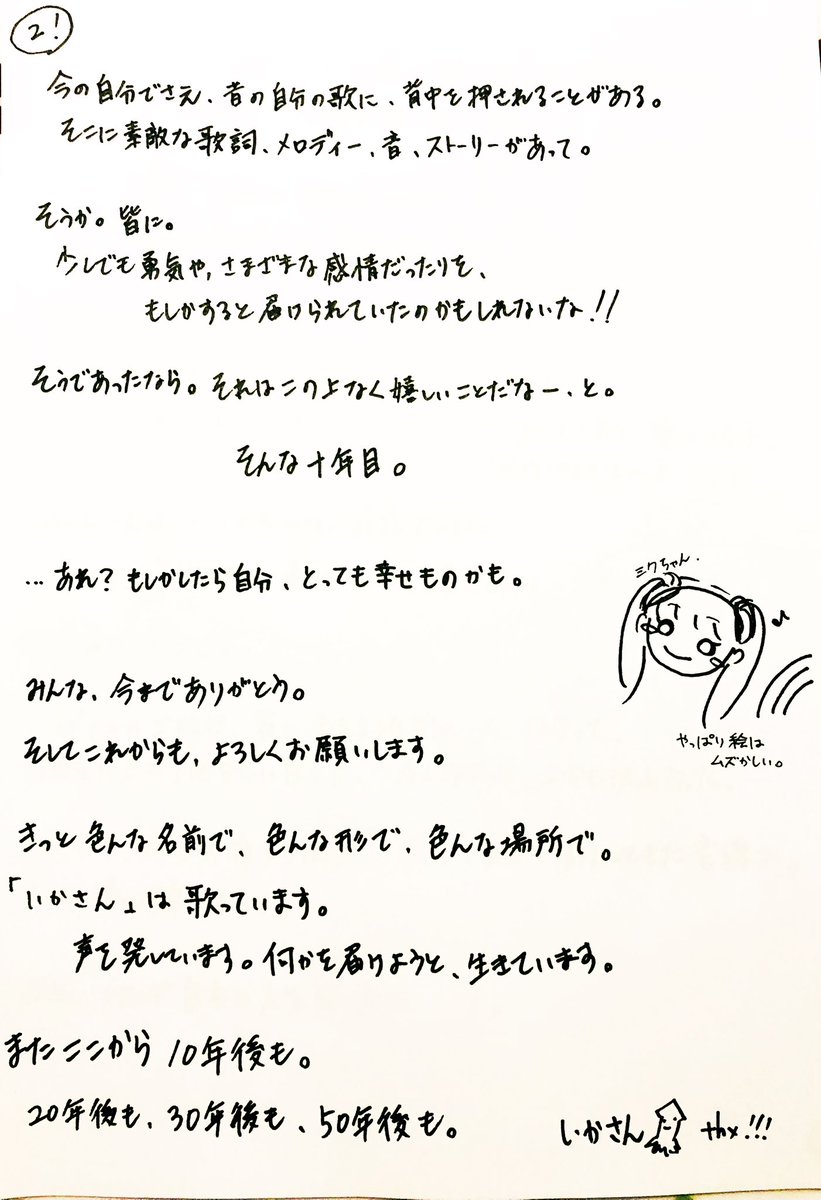 2!
今の自分でさえ、昔の自分の歌に、背中を押されることがある。
そこに素敵な歌詞、メロディー、音、ストーリーがあって。
そうか。皆に。
少しでも勇気や、さまざまな感情だったりを、
もしかすると届けられていたのかもしれないな!!
そうであったなら。それはこの上なく嬉しいことだなー、と。
そんな十年目。
…あれ?もしかしたら自分、とっても幸せものかも。
ミクちゃん.
やっぱり絵は
ムズかしい。
みんな、今までありがとう。
そしてこれからも、よろしくお願いします。
きっと色んな名前で、色んな形で、色んな場所で。
「いかさん」は歌っています。
声を発しています。何かを届けようと、生きています。
またここから10年後も。
20年後も、30年後も、50年後も。
いかさん thx!!!